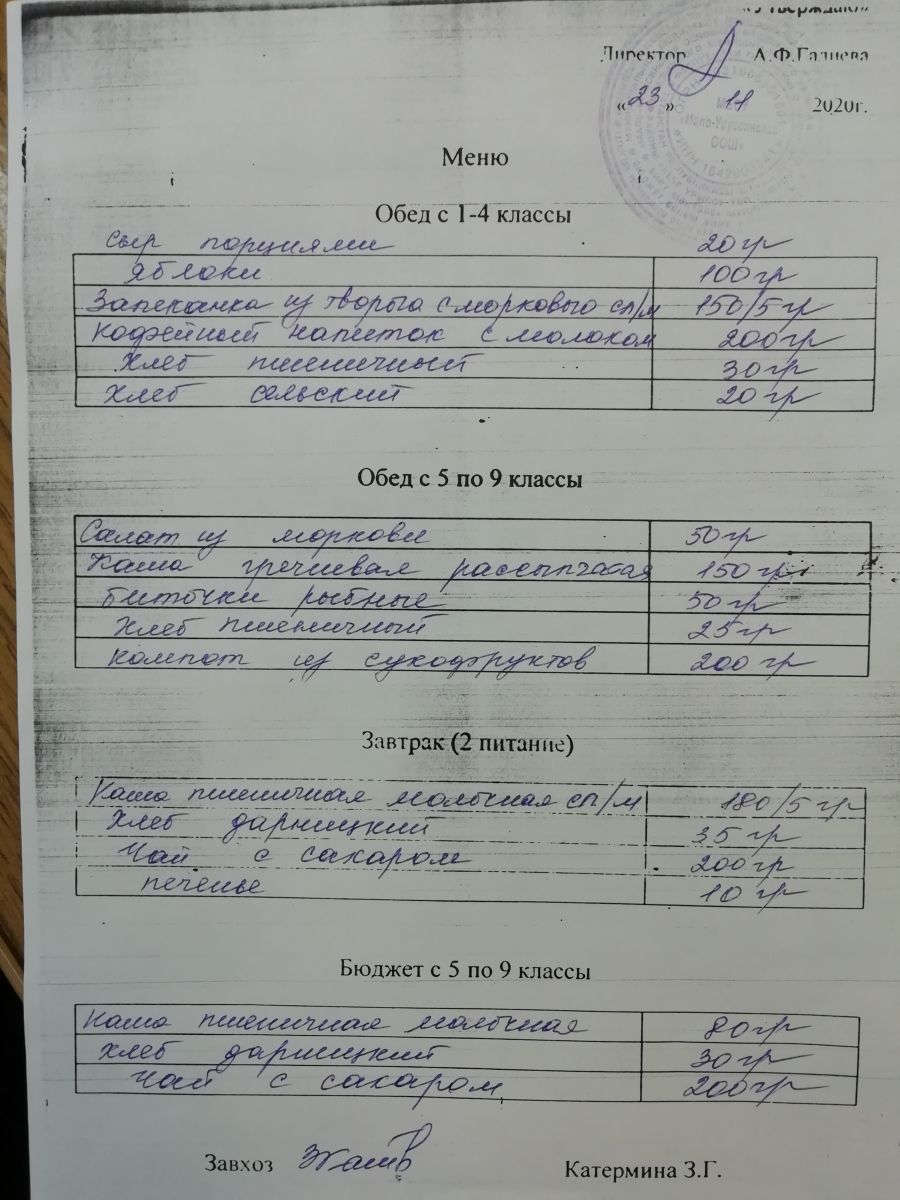 «Утверждаю»
Директор А.Ф.Галиева
«23» 11 2020г.
Мало-Урусинская
ООШ»
Меню
Обед с 1-4 классы
сыр порциями 20гр
яблоки 100гр
Запеканка из творога с морковью сл/м 150/5гр
кофейный напиток с молоком 200гр
Хлеб пшеничный 30гр
Хлеб сельский 20гр
Обед с 5 по 9 классы
Салат из моркови 50гр
Каша гречневая рассыпчатая 150гр
биточки рыбные 50гр
Хлеб пшеничный 25гр
компот из сухофруктов 200гр
Завтрак (2 питание)
Каша пшеничная молочная сл/м 180/5гр
Хлеб дарницкий 35гр
Чай с сахаром 200гр
печенье 10гр
Бюджет с 5 по 9 классы
Каша пшеничная молочная 80гр
хлеб дарницкий 30гр
Чай с сахаром 200гр
Завхоз Катермина З.Г.